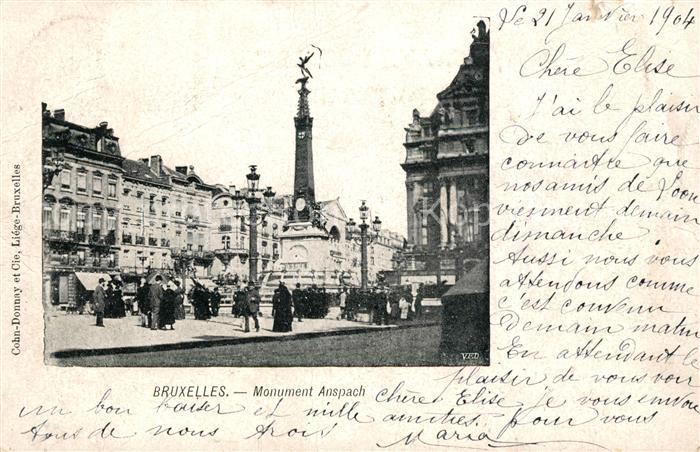 le 21 Janvier 1904
Chère Elise
J'ai le plaisir
de vous faire
connaitre que
nos amis de
viesment demain
dimanche
Aussi nous vous
attendons comme
c'est convenu
Demain matin
En attendant le
plaisir de vous voir
chère Elise je vous envoie
un bon baiser et mille amitiés, pour vous
tous de nous trois Maria
Cohn-Donnay et Cie, Liége-Bruxelles
VED
BRUXELLES. — Monument Anspach